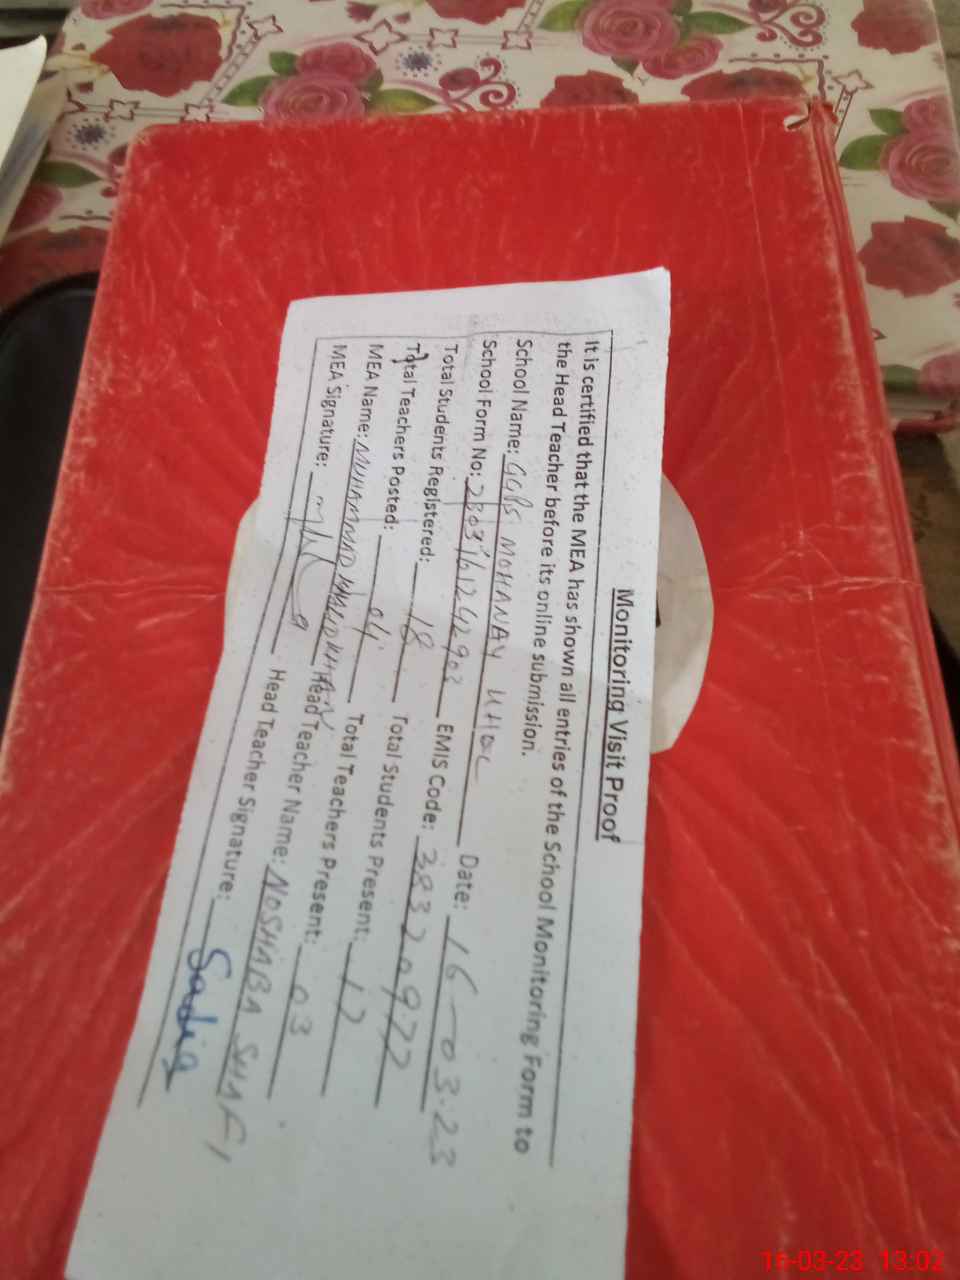 Monitoring Visit Proof
It is certified that the MEA has shown all entries of the School Monitoring Form to
the Head Teacher before its online submission.
School Name: GGPS MOHANAY Date: 16-03-23
School Form No: EMIS Code:
Total Students Registered: 18 Total Students Present:
Total Teachers Posted: 04 Total Teachers Present: 03
MEA Name: MUHAMMAD Head Teacher Name: NOSHABA SHAFI
MEA Signature: Head Teacher Signature: Sadia
16-03-23 13:02